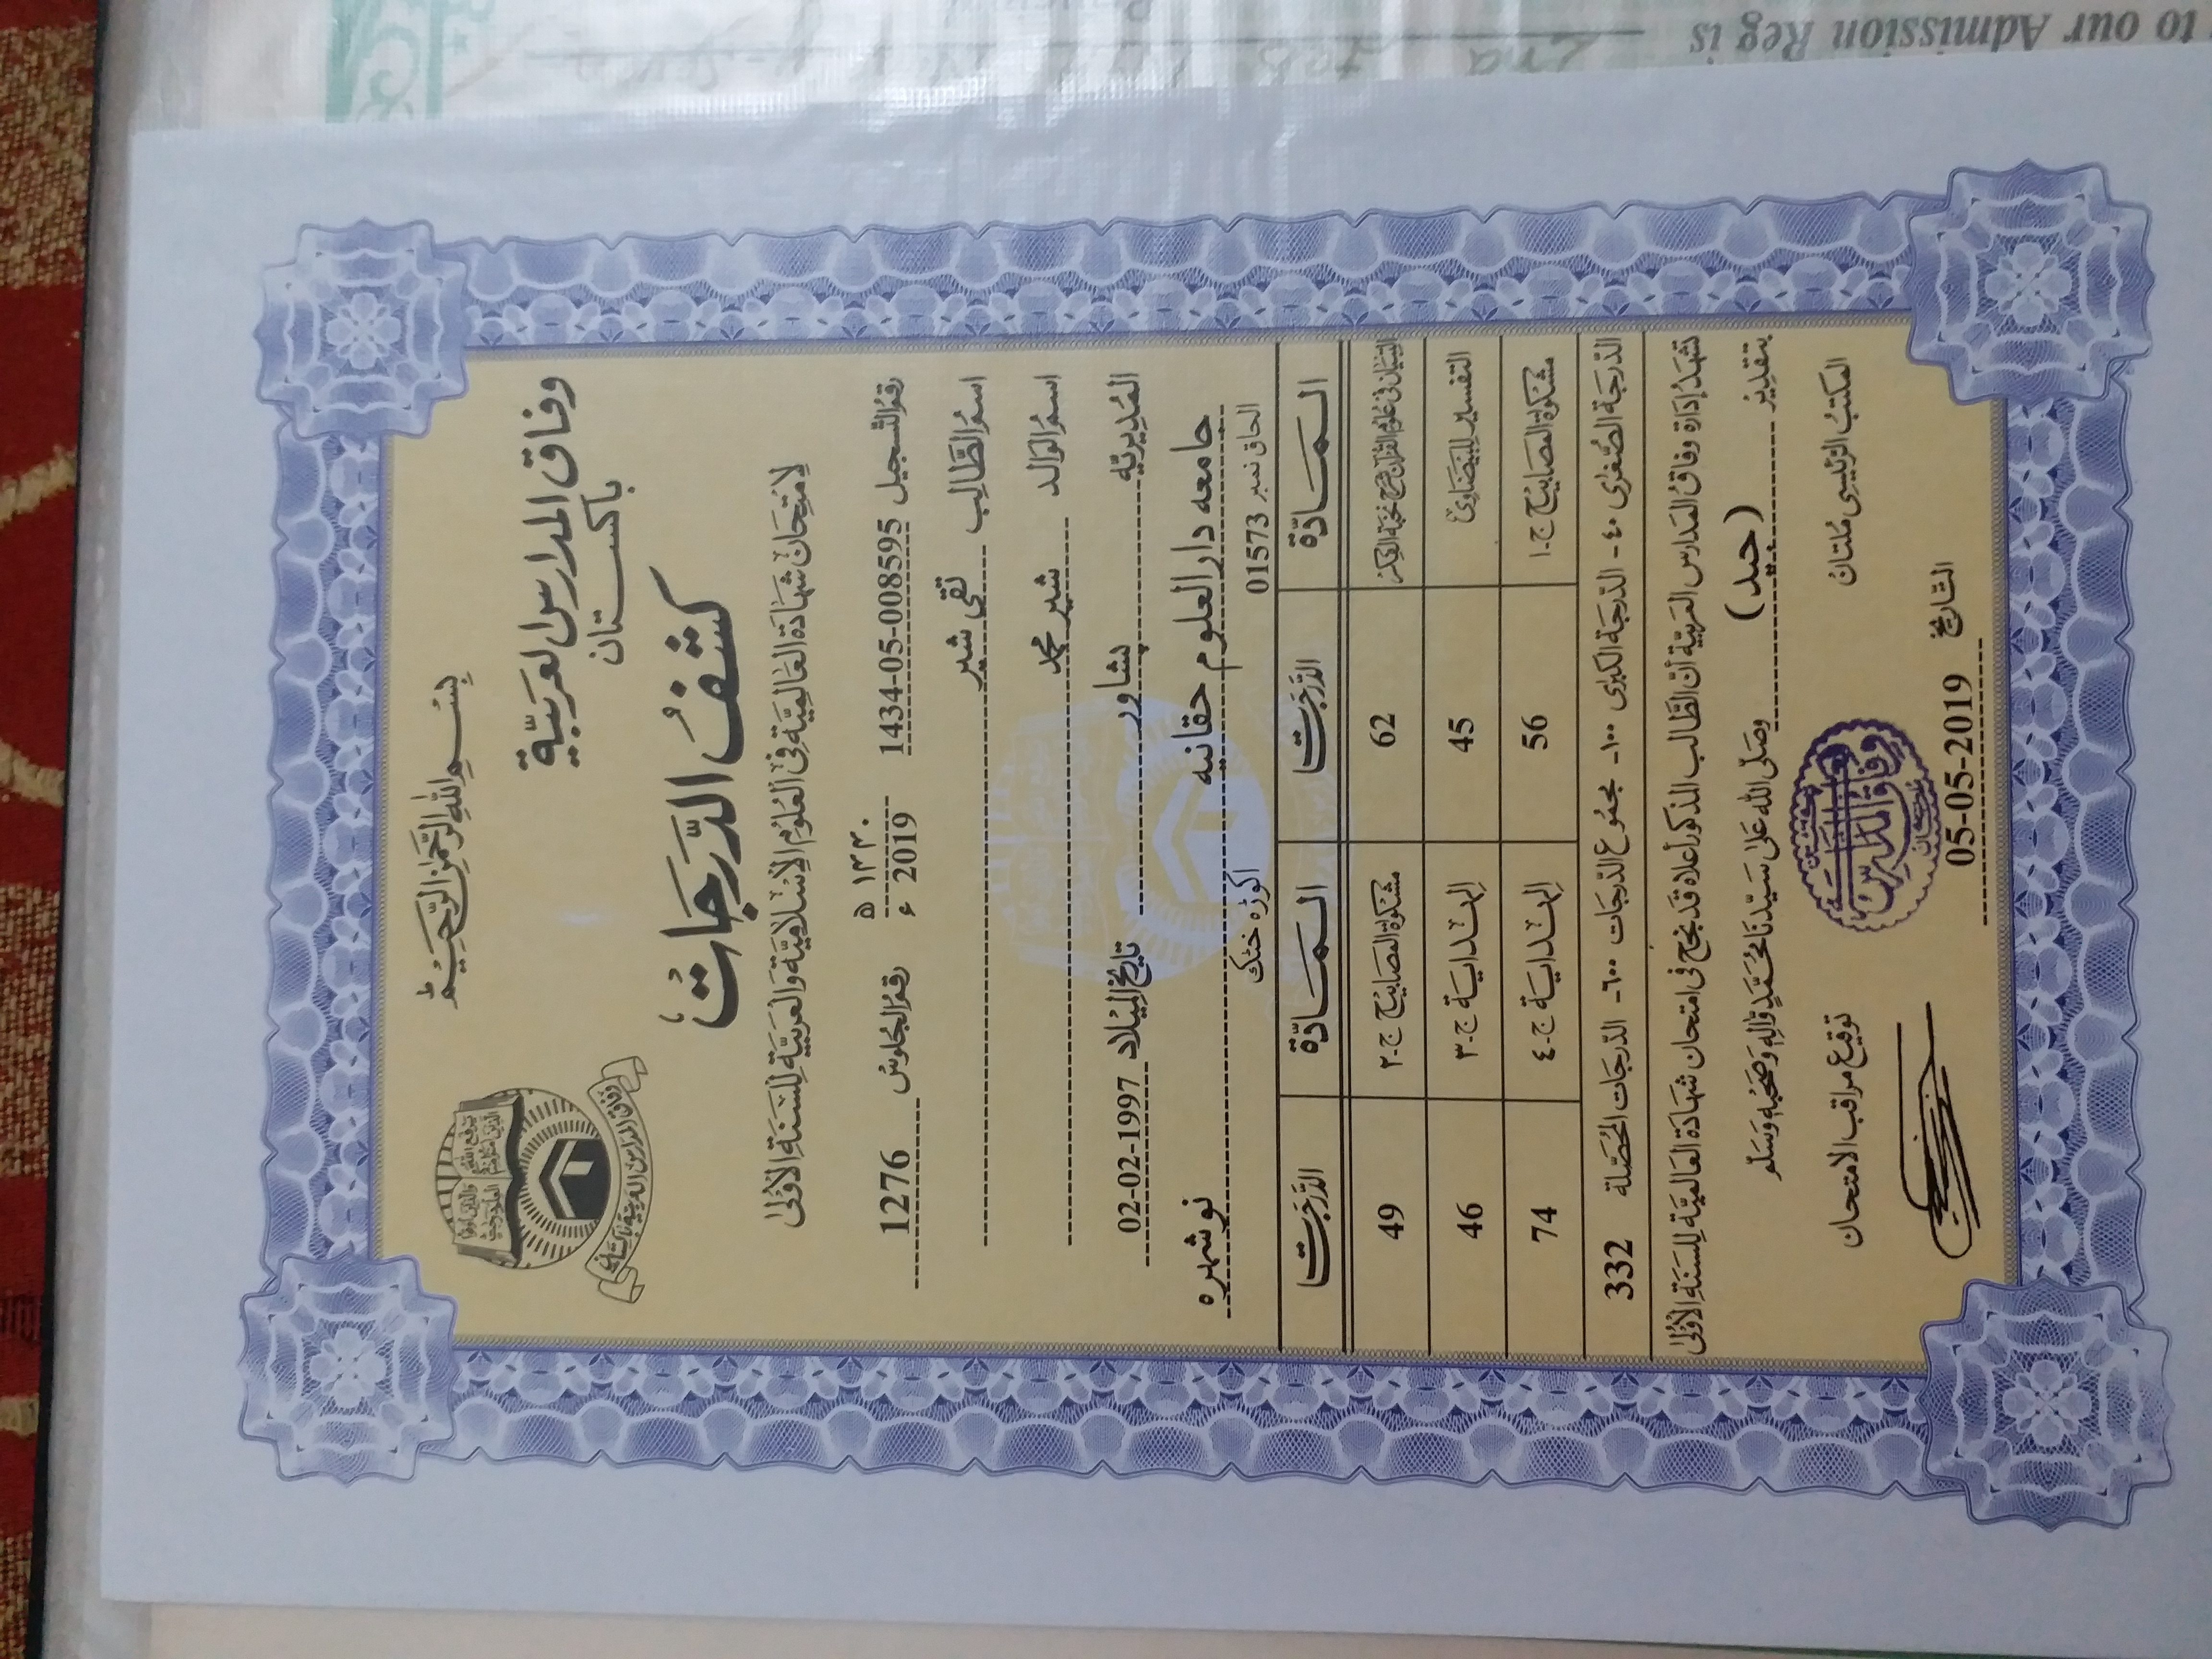 to our Admission Reg is
بسم الله الرحمن الرحيم
وفاق المدارس العربية
باكستان
كشف الدرجات
لامتحان شهادة العالمية في العلوم الإسلامية والعربية للسنة الأولى
رقم التسجيل 1434-05-008595 ١٤٤٠ ه 2019 ء رقم الجلوس 1276
اسم الطالب تقی شیر
اسم الوالد شیر محمد
المديرية پشاور تاريخ الميلاد 02-02-1997
جامعه دارالعلوم حقانيه نوشهره
الحاق نمبر 01573 اکوڑہ خٹک
المادة الدرجات المادة الدرجات
التبيان في علوم القرآن شرح نخبة الفكر 62 مشكوة المصابيح ج-٢ 49
التفسير للبيضاوي 45 الهداية ج-٣ 46
مشكوة المصابيح ج-١ 56 الهداية ج-٤ 74
الدرجة الصغرى ٤٠- الدرجة الكبرى ١٠٠- مجموع الدرجات ٦٠٠- الدرجات المحصلة 332
تشهد إدارة وفاق المدارس العربية أن الطالب المذكور أعلاه قد نجح في امتحان شهادة العالمية للسنة الأولى
بتقدير (جيد) وصلى الله على سيدنا محمد وآله وصحبه وسلم
المكتب الرئيسي ملتان توقيع مراقب الامتحان
وفاق المدارس العربية
التاريخ 05-05-2019
وفاق المدارس العربية باكستان